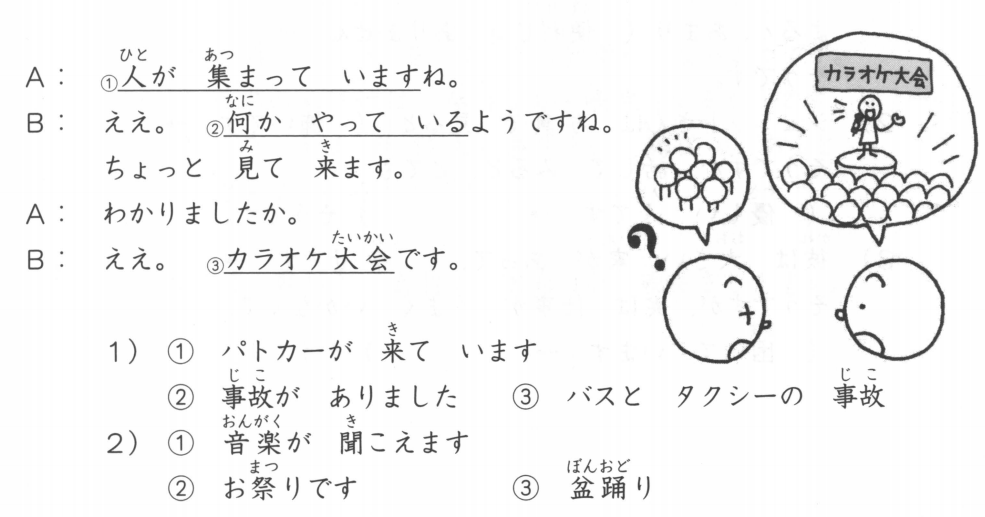 ひと あつ
A： ①人が 集まって いますね。
なに
B： ええ。 ②何か やって いるようですね。
み き
ちょっと 見て 来ます。
A： わかりましたか。
たいかい
B： ええ。 ③カラオケ大会です。
カラオケ大会
?
き
1） ① パトカーが 来て います
じこ じこ
② 事故が ありました ③ バスと タクシーの 事故
おんがく き
2） ① 音楽が 聞こえます
まつ ぼんおど
② お祭りです ③ 盆踊り